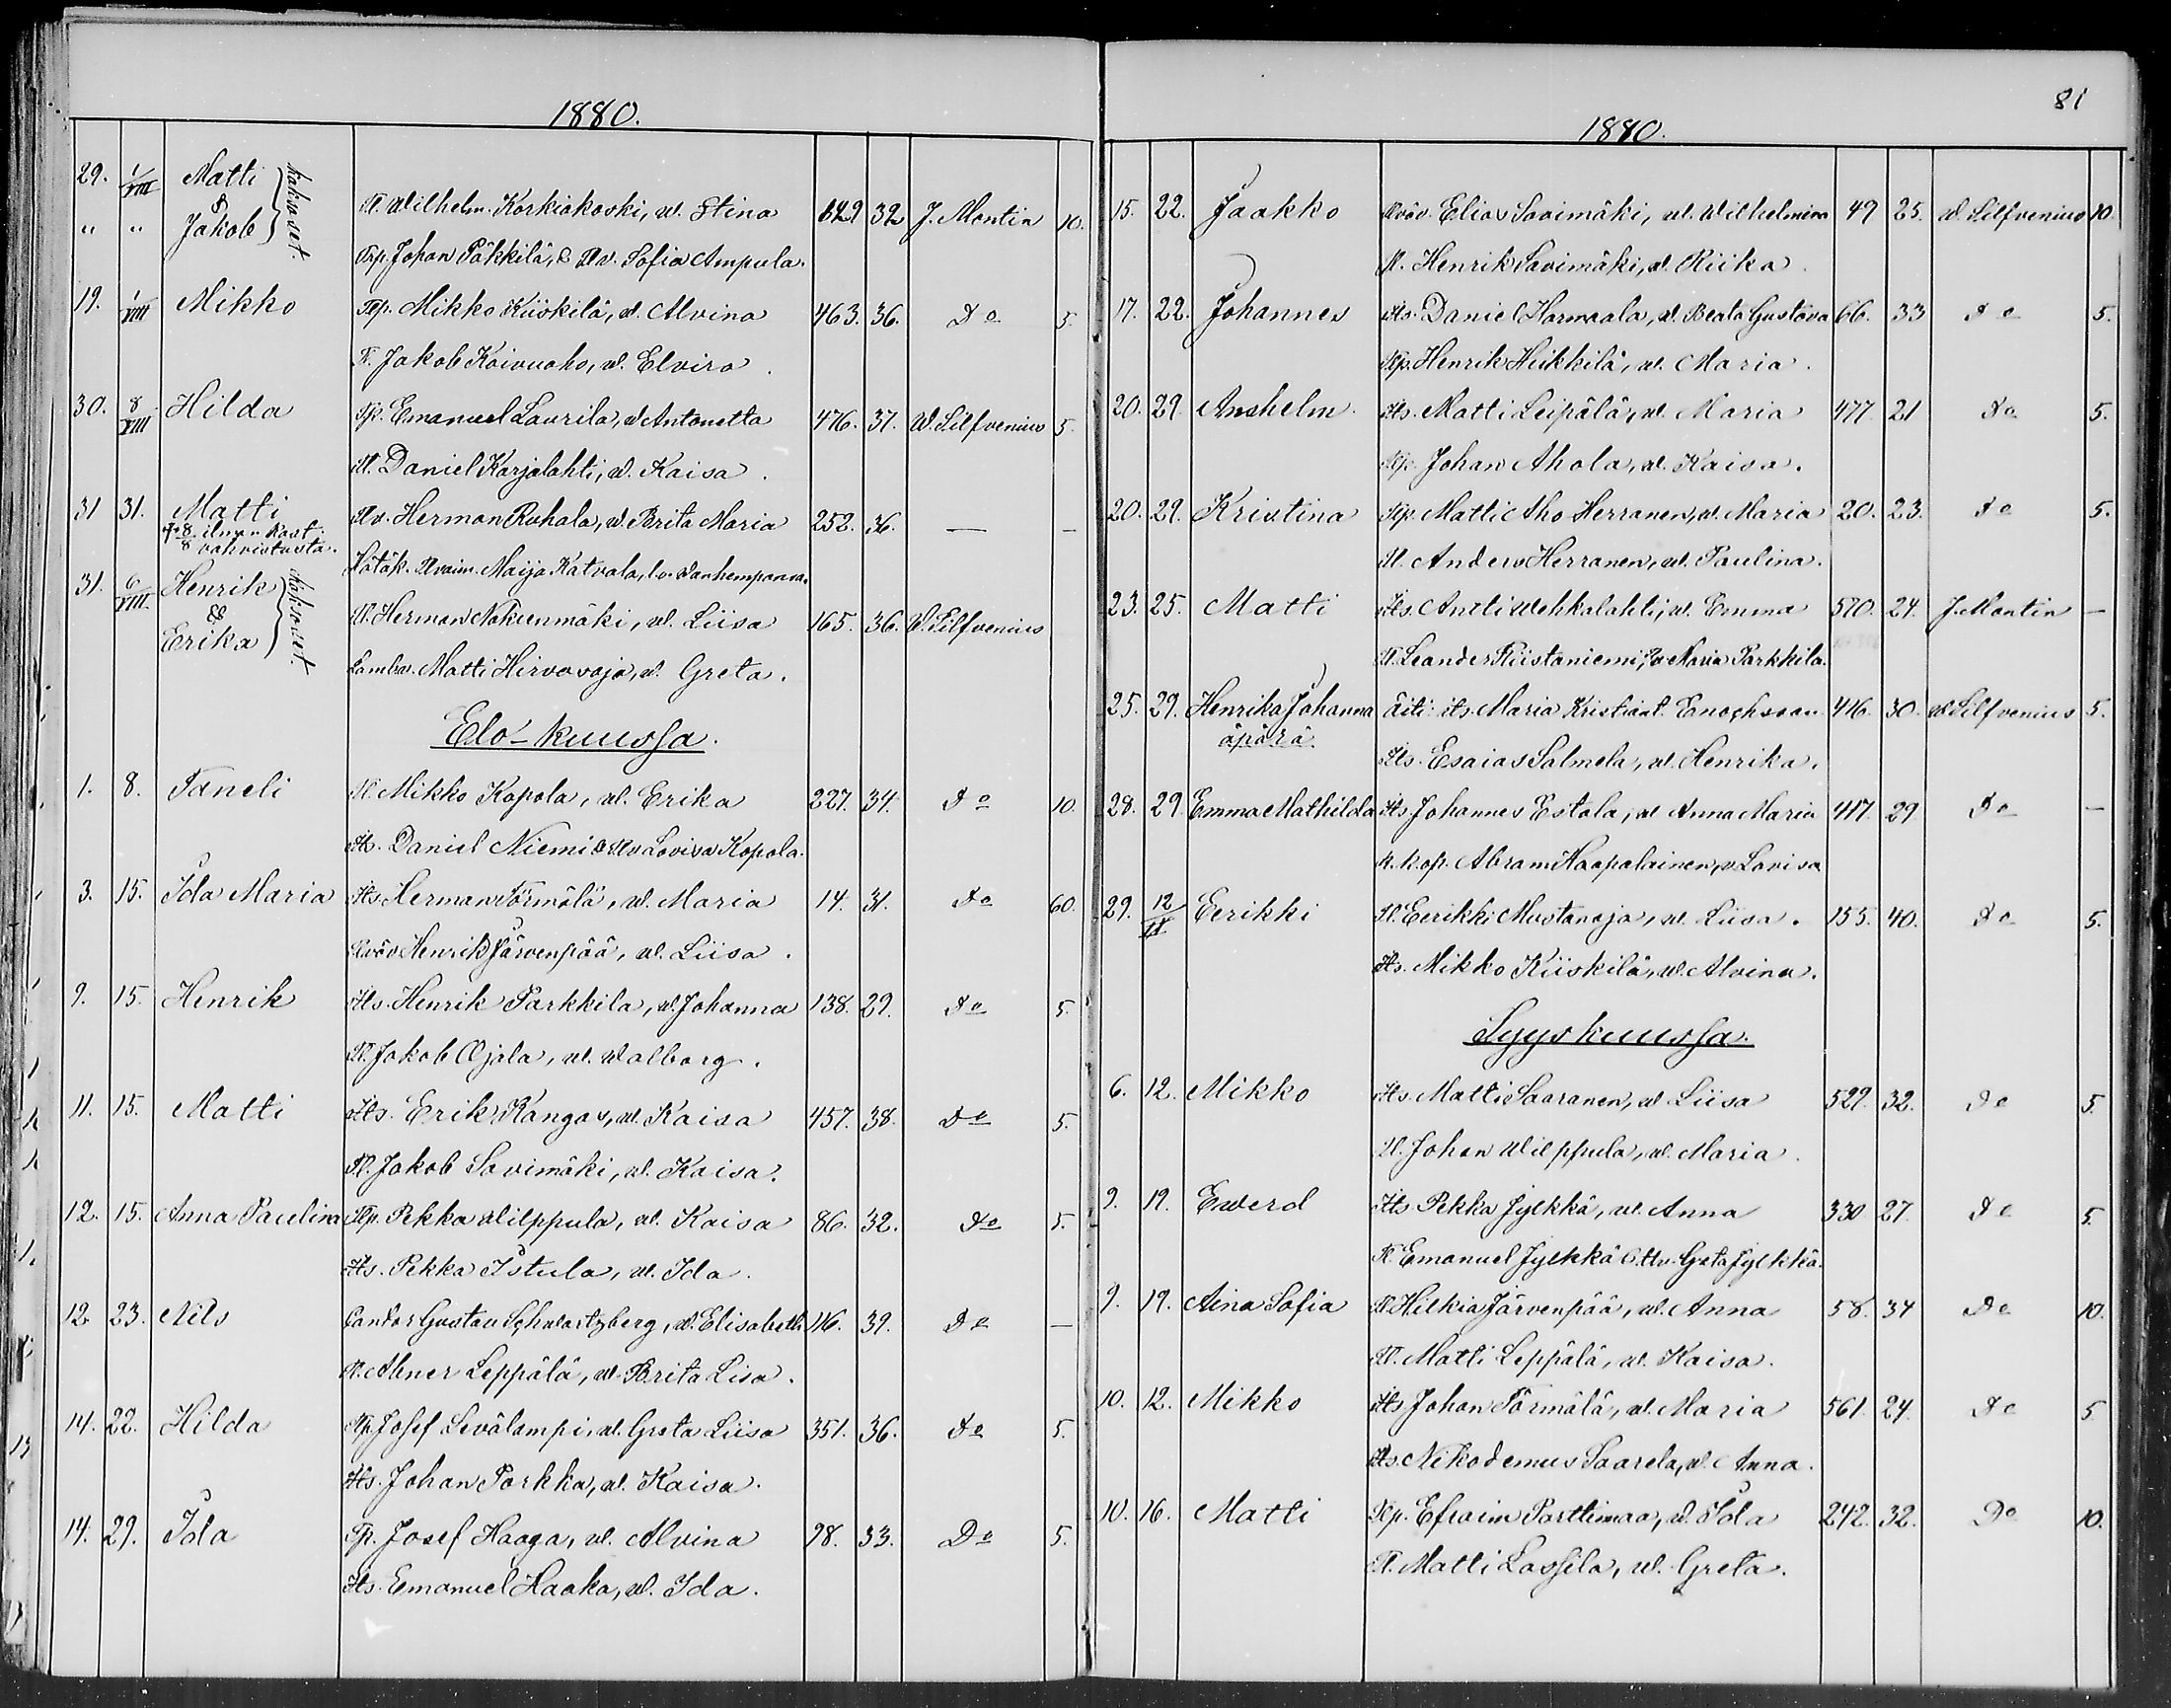 1880.
29. 1/VIII Matti
& kaksoset.
" " Jakob Tl. Wilhelm Korkiakoski, w. Stina 649 32 J. Montin 10.
Tsp. Johan Päkkilä, & Sofia Ampula.
19. 1/VIII Mikko Mikko Kiiskilä, w. Alvina 463. 36. Do 5.
Tl. Jakob Koivuaho, w. Elvira.
30. 8/VIII Hilda Tsp. Emanuel Laurila, w. Antonetta 476. 37. W. Silfvenius 5.
Tl. Daniel Karjalahti, w. Kaisa.
31 31. Matti Herman Ruhala, w. Brita Maria 252. 36. — —
ilman kast. vahvistusta.
Hätäk. Maija Katvala, l.v. wanhempansa.
31. 6/VIII. Henrik
& kaksoset. Tl. Herman Nokunmäki, w. Liisa 165. 36. W. Silfvenius
Erika
Lambv. Matti Hirvavaja, w. Greta.
Elo-kuussa.
1. 8. Taneli Tl. Mikko Kopola, w. Erika 227. 34. Do 10.
Its. Daniel Niemi & Lovisa Kopola.
3. 15. Ida Maria Its. Herman Törmälä, w. Maria 14. 31. Do 60.
Henrik Järvenpää, w. Liisa.
9. 15. Henrik Its. Henrik Parkkila, w. Johanna 138. 29. Do 5.
Tl. Jakob Ojala, w. Walborg.
11. 15. Matti Its. Erik Kangas, w. Kaisa 457. 38. Do 5.
Tl. Jakob Savimäki, w. Kaisa.
12. 15. Anna Paulina Pekka Wilppula, w. Kaisa 86. 32. Do 5.
Its. Pekka Istula, w. Ida.
12. 23. Nils Gustav Schwartzberg, w. Elisabeth 116. 39. Do —
Tl. Abner Leppälä, w. Brita Lisa.
14. 22. Hilda Josef Levälampi, w. Greta Liisa 351. 36. Do 5.
Its. Johan Porkka, w. Kaisa.
14. 29. Ida Tp. Josef Haaga, w. Alvina 98. 33. Do 5.
Its. Emanuel Haaka, w. Ida.
81
1880.
15. 22. Jaakko Elias Savimäki, w. Wilhelmina 49 25. W. Silfvenius 10.
Tl. Henrik Savimäki, w. Riika.
17. 22. Johannes Its. Daniel Harmaala, w. Beata Gustava 66. 33 Do 5.
Henrik Heikkilä, w. Maria.
20. 29. Anshelm Its. Matti Leipälä, w. Maria 477. 21 Do 5.
Johan Ahola, w. Kaisa.
20. 29. Kristina Matti Aho Herranen, w. Maria 20. 23. Do 5.
Tl. Anders Herranen, w. Paulina.
23. 25. Matti Its. Antti Wehkalahti, w. Emma 570. 24. J. Montin —
Tl. Leander Riistaniemi, Maria Parkkila.
25. 29. Henrika Johanna äiti: its. Maria Kristiant. Enochsson 416. 30. W. Silfvenius 5.
äpärä.
Its. Esaias Salmela, w. Henrika.
28. 29. Emma Mathilda Its. Johannes Estola, w. Anna Maria 417. 29 Do —
k. k. op. Abram Haapalainen, w. Lovisa
29. 12/IX Eerikki Tl. Eerikki Mustanoja, w. Liisa. 155. 40. Do 5.
Its. Mikko Kiiskilä, w. Alvina.
Syyskuussa.
6. 12. Mikko Its. Matti Saaranen, w. Liisa 529. 32. Do 5.
Tl. Johan Wilppula, w. Maria.
9. 19. Ewerd Its. Pekka Jylkkä, w. Anna 330 27. Do 5.
Tl. Emanuel Jylkkä & Greta Jylkkä.
9. 19. Aina Sofia Tl. Hilkia Järvenpää, w. Anna 58. 34 Do 10.
Tl. Matti Leppälä, w. Kaisa.
10. 12. Mikko Its. Johan Törmälä, w. Maria 561. 24. Do 5
Its. Nikodemus Saarela, w. Anna.
10. 16. Matti Efraim Parttimaa, w. Ida 242. 32. Do 10.
Tl. Matti Lassila, w. Greta.